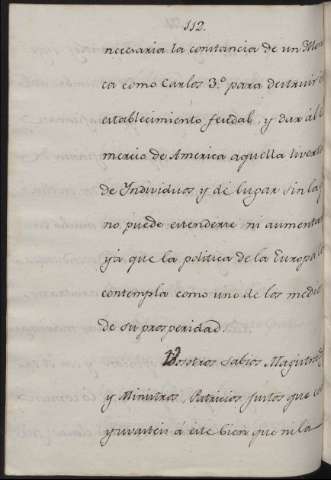 112.
necesaria la constancia de un Mona
ca como Carlos 3.º para destruir
establecimiento feudal, y dar al
mercio de America aquella liver
de Individuos y de lugar sin la
no puede extenderse ni aumentar
yá que la politica de la Europa
contempla como uno de los medi
de su prosperidad.
Vosotros Sabios Magistrad
y Ministros, Patricios justos que
yuvasteis á este bien que ni la